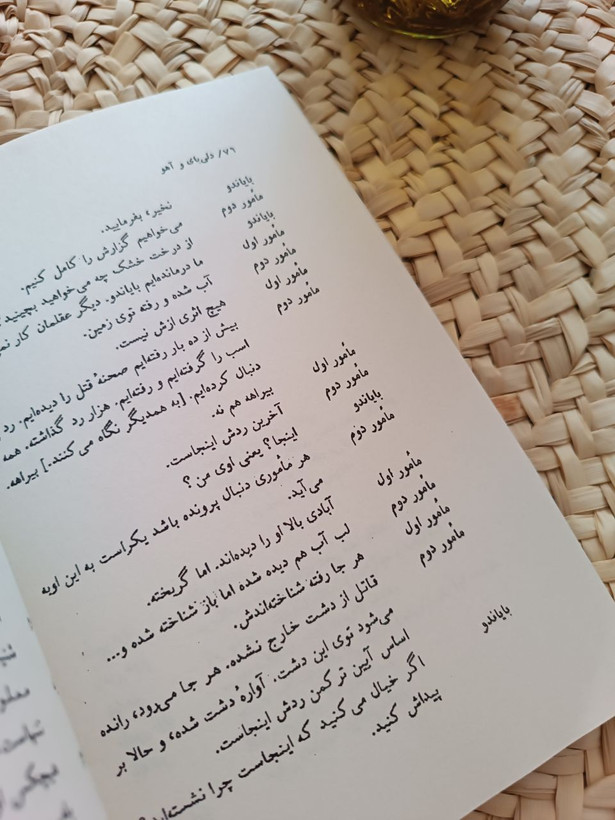 ۷۶/ دلی‌بای و آهو
باباندو نخیر، بفرمایید.
مأمور دوم می‌خواهیم گزارش را کامل کنیم.
باباندو از درخت خشک چه می‌خواهید بچینید؟
مأمور اول ما درمانده‌ایم باباندو. دیگر عقلمان کار
مأمور دوم آب شده و رفته توی زمین.
مأمور اول هیچ اثری ازش نیست.
مأمور دوم بیش از ده بار رفته‌ایم صحنهٔ قتل را دیده‌ایم. رد
اسب را گرفته‌ایم و رفته‌ایم. هزار رد گذاشته. همه
دنبال کرده‌ایم. [به همدیگر نگاه می کنند.] بیراهه.
مأمور اول بیراهه هم نه.
مأمور دوم آخرین ردش اینجاست.
باباندو اینجا؟ یعنی اوی من؟
مأمور دوم هر مأموری دنبال پرونده باشد یکراست به این اوبه
می‌آید.
مأمور اول آبادی بالا او را دیده‌اند. اما گریخته.
مأمور دوم لب آب هم دیده شده اما باز شناخته شده و...
مأمور اول هر جا رفته شناخته‌اندش.
مأمور دوم قاتل از دشت خارج نشده. هر جا می‌رود، رانده
می‌شود توی این دشت. آوارهٔ دشت شده، و حالا بر
اساس آیین ترکمن ردش اینجاست.
باباندو اگر خیال می کنید که اینجاست چرا نشسته‌اید؟
پیداش کنید.